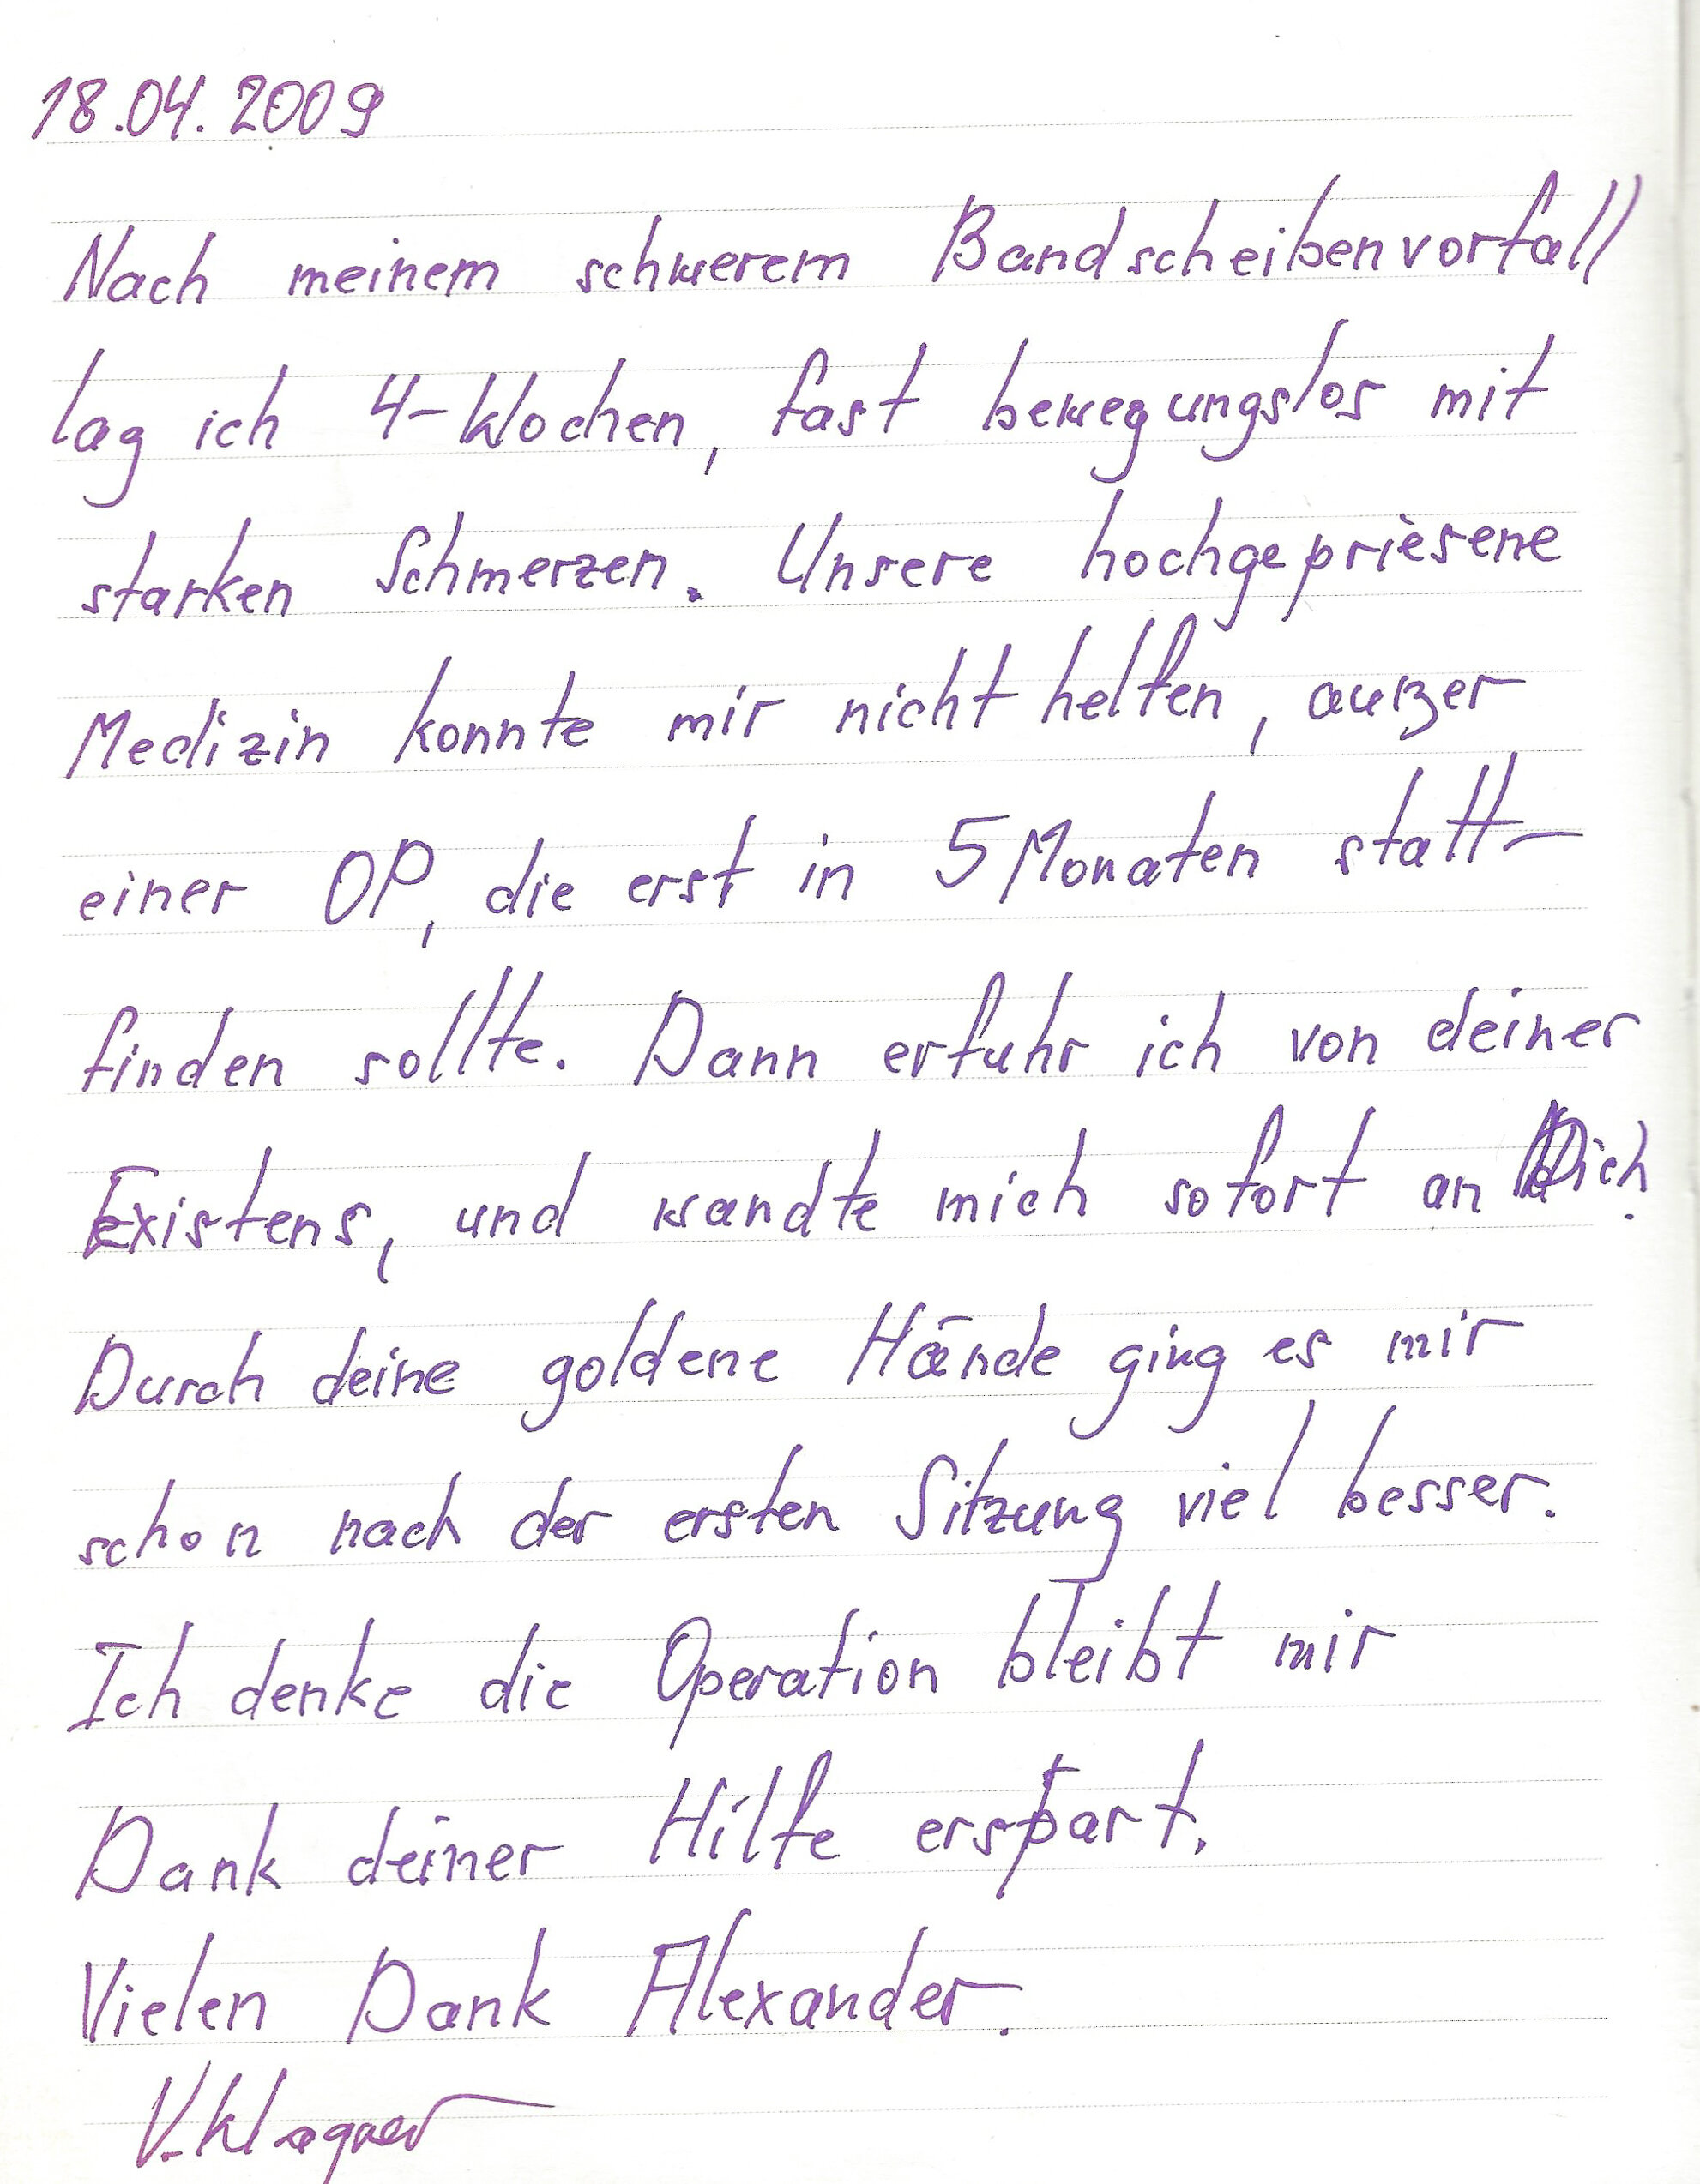 18.04.2009
Nach meinem schwerem Bandscheibenvorfall
lag ich 4-Wochen, fast bewegungslos mit
starken Schmerzen. Unsere hochgepriesene
Medizin konnte mir nicht helfen, außer
einer OP, die erst in 5 Monaten statt-
finden sollte. Dann erfuhr ich von deiner
Existens, und wandte mich sofort an Dich.
Durch deine goldene Hände ging es mir
schon nach der ersten Sitzung viel besser.
Ich denke die Operation bleibt mir
Dank deiner Hilfe erspart.
Vielen Dank Alexander.
V. Wagner